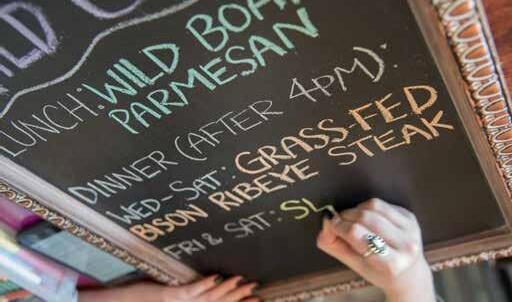 LUNCH: WILD BOAR
PARMESAN
DINNER (AFTER 4PM):
WED-SAT: GRASS-FED
BISON RIBEYE STEAK
FRI & SAT: SL